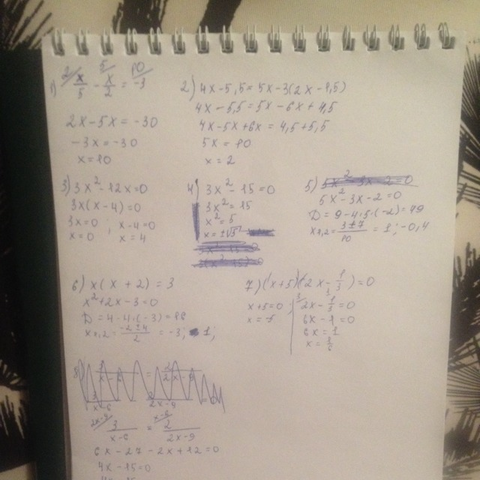 1) x/5 - x/2 = -3
2x-5x = -30
-3x = -30
x = 10
2) 4x-5,5 = 5x-3(2x-1,5)
4x-5,5 = 5x-6x+4,5
4x-5x+6x = 4,5+5,5
5x = 10
x = 2
3) 3x²-12x=0
3x(x-4)=0
3x=0 ; x-4=0
x=0 x=4
4) 3x²-15=0
3x²=15
x²=5
x=±√5
5) 5x²-3x-2=0
D=9-4·5·(-2)=49
x1,2= (3±7)/10 = 1; -0,4
6) x(x+2)=3
x²+2x-3=0
D=4-4·(-3)=16
x1,2= (-2±4)/2 = -3; 1;
7) (x+5)(2x-1/3)=0
x+5=0 2x-1/3=0
x=-5 6x-1=0
6x=1
x=1/6
3/(x-6) = 2/(2x-9)
6x-27-2x+12=0
4x-15=0